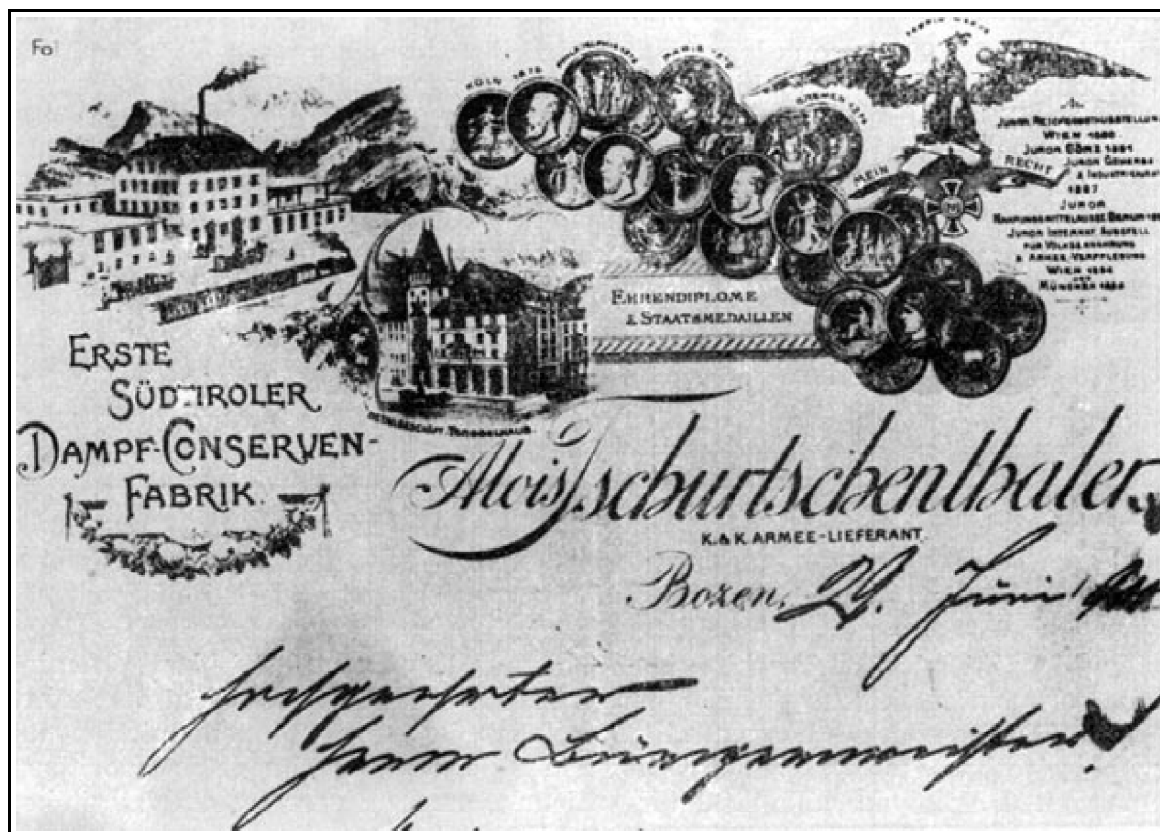 KÖLN 1875
BREMEN 1874
MEIN RECHT
JUROR REICHSAUSSTELLUNG
WIEN
JUROR GÖRZ 1891
JUROR GEWERBE
& INDUSTRIE
1887
JUROR
JUROR INTERNAT. AUSSTELL
FÜR VOLKSERNÄHRUNG
& ARMEE-VERPFLEGUNG
WIEN 1894
MÜNCHEN
EHRENDIPLOME
& STAATSMEDAILLEN
ERSTE
SÜDTIROLER
DAMPF-CONSERVEN-
FABRIK.
Alois Tschurtschenthaler.
K. & K. ARMEE-LIEFERANT.
Bozen, 29. Juni
Hochgeehrter
Herr Bürgermeister!